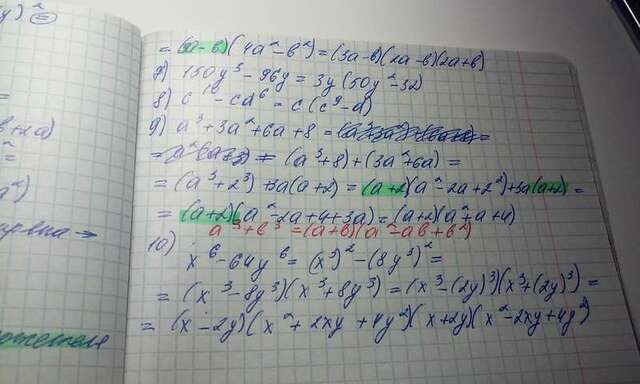 = (3a-b)(4a²-b²) = (3a-b)(2a-b)(2a+b)
7) 150y³-96y = 3y(50y²-32)
8) c¹⁰-cd⁶ = c(c⁹-d)
9) a³+3a²+6a+8 =
= (a³+8)+(3a²+6a) =
= (a³+2³)+3a(a+2) = (a+2)(a²-2a+2²)+3a(a+2) =
= (a+2)(a²-2a+4+3a) = (a+2)(a²+a+4)
a³+b³ = (a+b)(a²-ab+b²)
10)
x⁶-64y⁶ = (x³)²-(8y³)² =
= (x³-8y³)(x³+8y³) = (x³-(2y)³)(x³+(2y)³) =
= (x-2y)(x²+2xy+4y²)(x+2y)(x²-2xy+4y²)